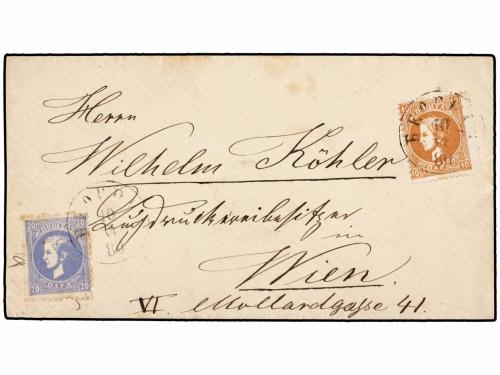 Herrn
Wilhelm Köhler
Buchdruckereibesitzer
in
Wien.
VI. Mollardgasse 41.
10 10
20 20
20 20